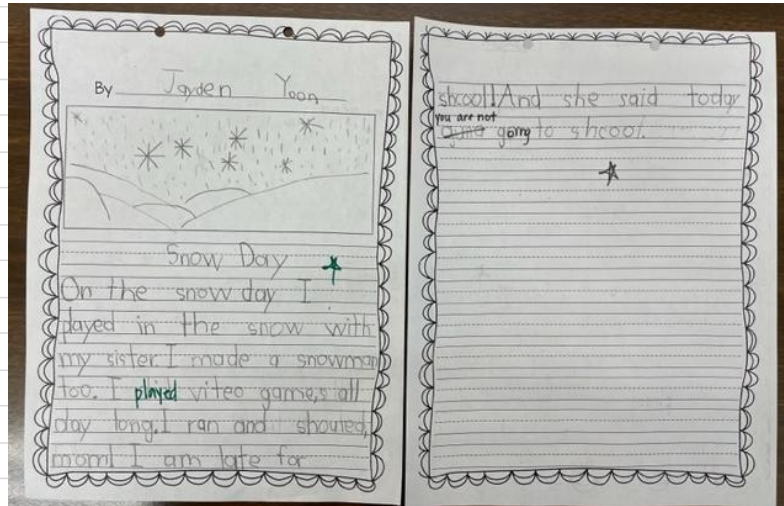 By Jayden Yoon
Snow Day
On the snow day I
played in the snow with
my sister. I made a snowman
too. I played viteo games all
day long. I ran and shouted,
mom! I am late for
shcool! And she said today
you are not
going to shcool.